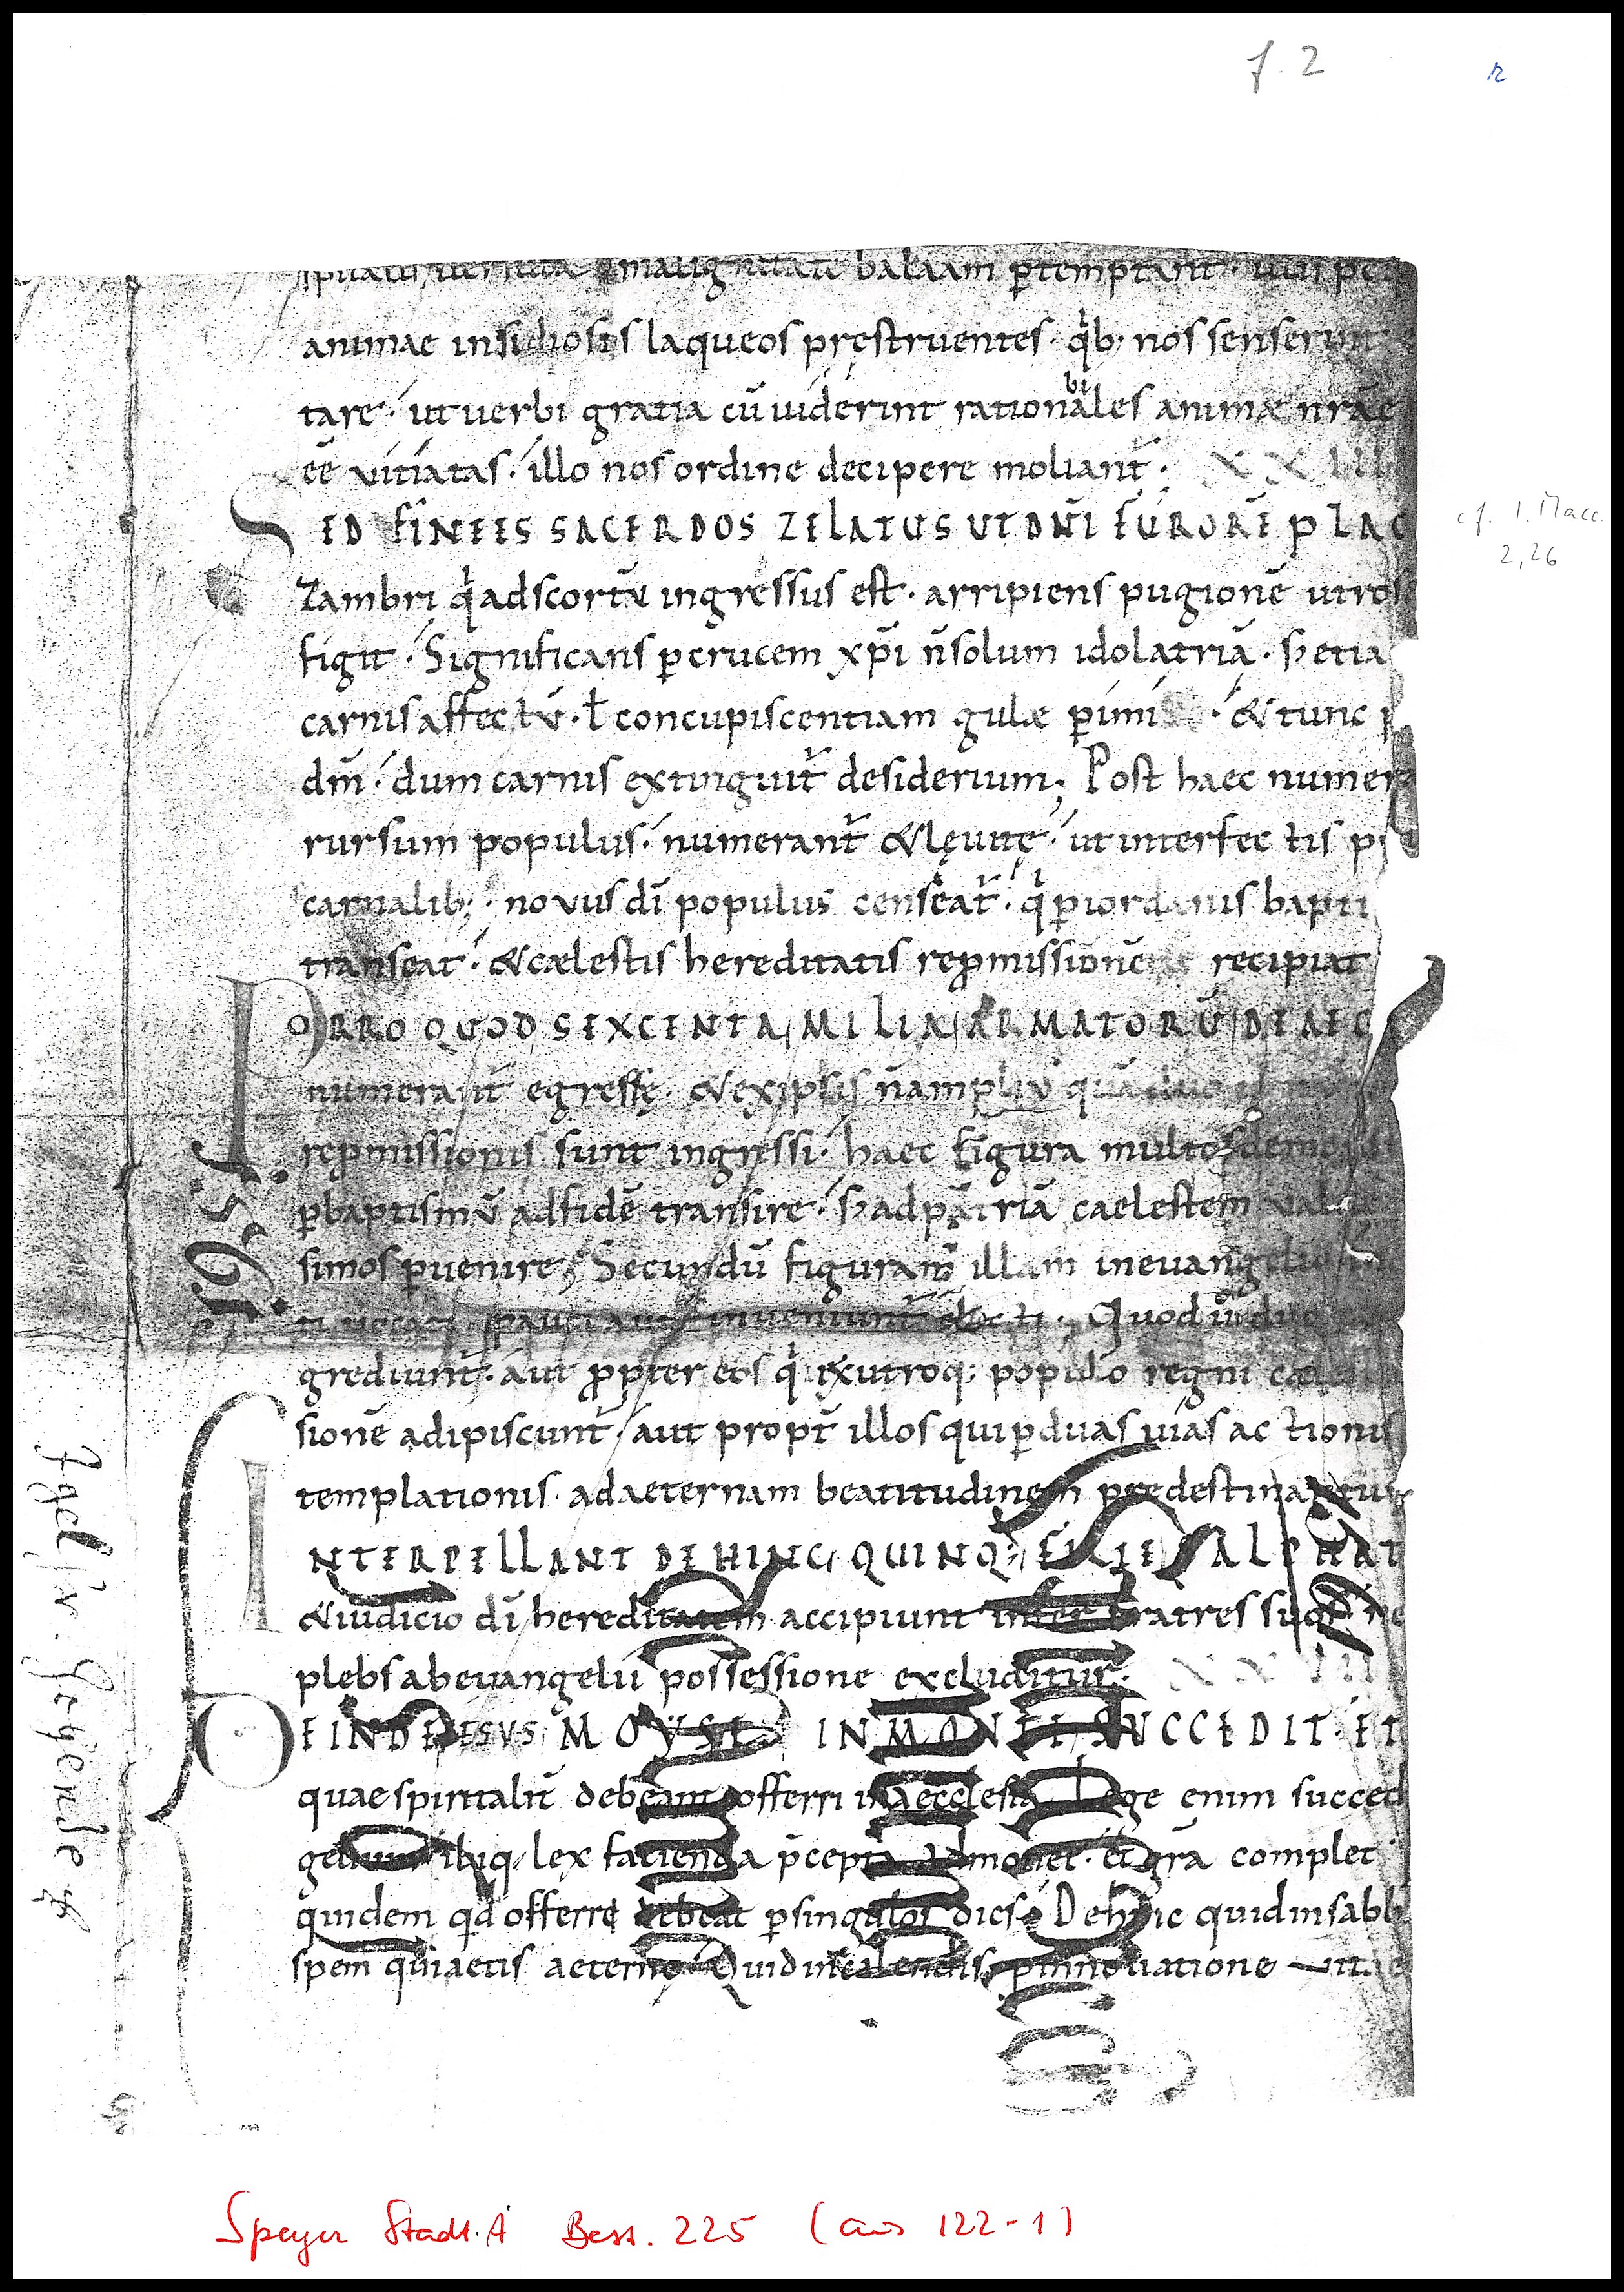 f. 2 r
malignitatē balaam p̄temptant·
animae insidiosis laqueos pręstruentes· qͥb; nos senserint
tare· ut uerbi gratia cū uiderint rationabiles animæ nr̄ae
ee᷒ vitiatas· illo nos ordine decipere moliant᷑· XXIII
SED FINEES SACERDOS ZELATUS UT DN̄I FURORĒ PLAC
cf. 1. Macc. 2,26
Zambri qͥ ad scortū ingressus est· arripiens pugionē utros
figit· Significans p̄ crucem xp̄i n̄ solum idolatriā· sꝫ etia
carnis affectū· ł concupiscentiam gulæ p̄imi · & tunc
dm̄· dum carnis extinguit᷑ desiderium; Post haec numer
rursum populus· numerant᷑ & lęuitę· ut interfectis
carnalib;· novus dī populus censeat᷑· qͥ p̄ iordanis bapti
transeat· & cælestis hereditatis rep̄missionē recipiat
PORRO QUOD SEXCENTA MILIA ARMATORŪ DE AEG
numerant᷑ egressę· & ex ipsis n̄ amplių quā duo
rep̄missionis sunt ingressi· haec figura multos
p̄ baptismū ad fidē transire· sꝫ ad patriā caelestem
simos p̄uenire; Secundū figuram illam in euangelii
ti uocati· pauci aut᷑ inueniunt᷑ electi· Quod ū duo
grediunt᷑· aut ꝓpter eos qͥ ex utroq; populo regni cæles
sionē adipiscunt᷑· aut propt᷑ illos qui p̄ duas uias actionis
templationis· ad aeternam beatitudinem predestinantur
INTERPELLANT DEHINC QUINQ; FILIE SALPHAT
& iudicio dī hereditatem accipiunt inter fratres suos
plebs ab euangelii possessione excluditur· XXIIII
DEINDE IESVS MOYSI IN MONTE SUCCEDIT· ET
quae spiritalit᷑ debeant offerri in aecclesia Lege enim succed
gelium ibiq; lex facienda p̄cepta admonet· et gr̄a complet
quidem qd̄ offerre debeat p̄ singulos dies· Dehinc quid in sabb
spem quiaetis aeternę Quid in calendis, p̄ innouatione uitae
Speyer Stadt.A Best. 225 (aus 122-1)